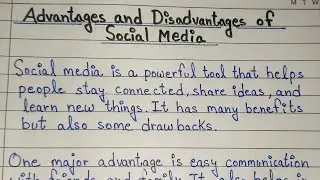 M T W
Advantages and Disadvantages of
Social Media
Social media is a powerful tool that helps
people stay connected, share ideas, and
learn new things. It has many benefits
but also some drawbacks.
One major advantage is easy communication
with friends and family. It also helps in